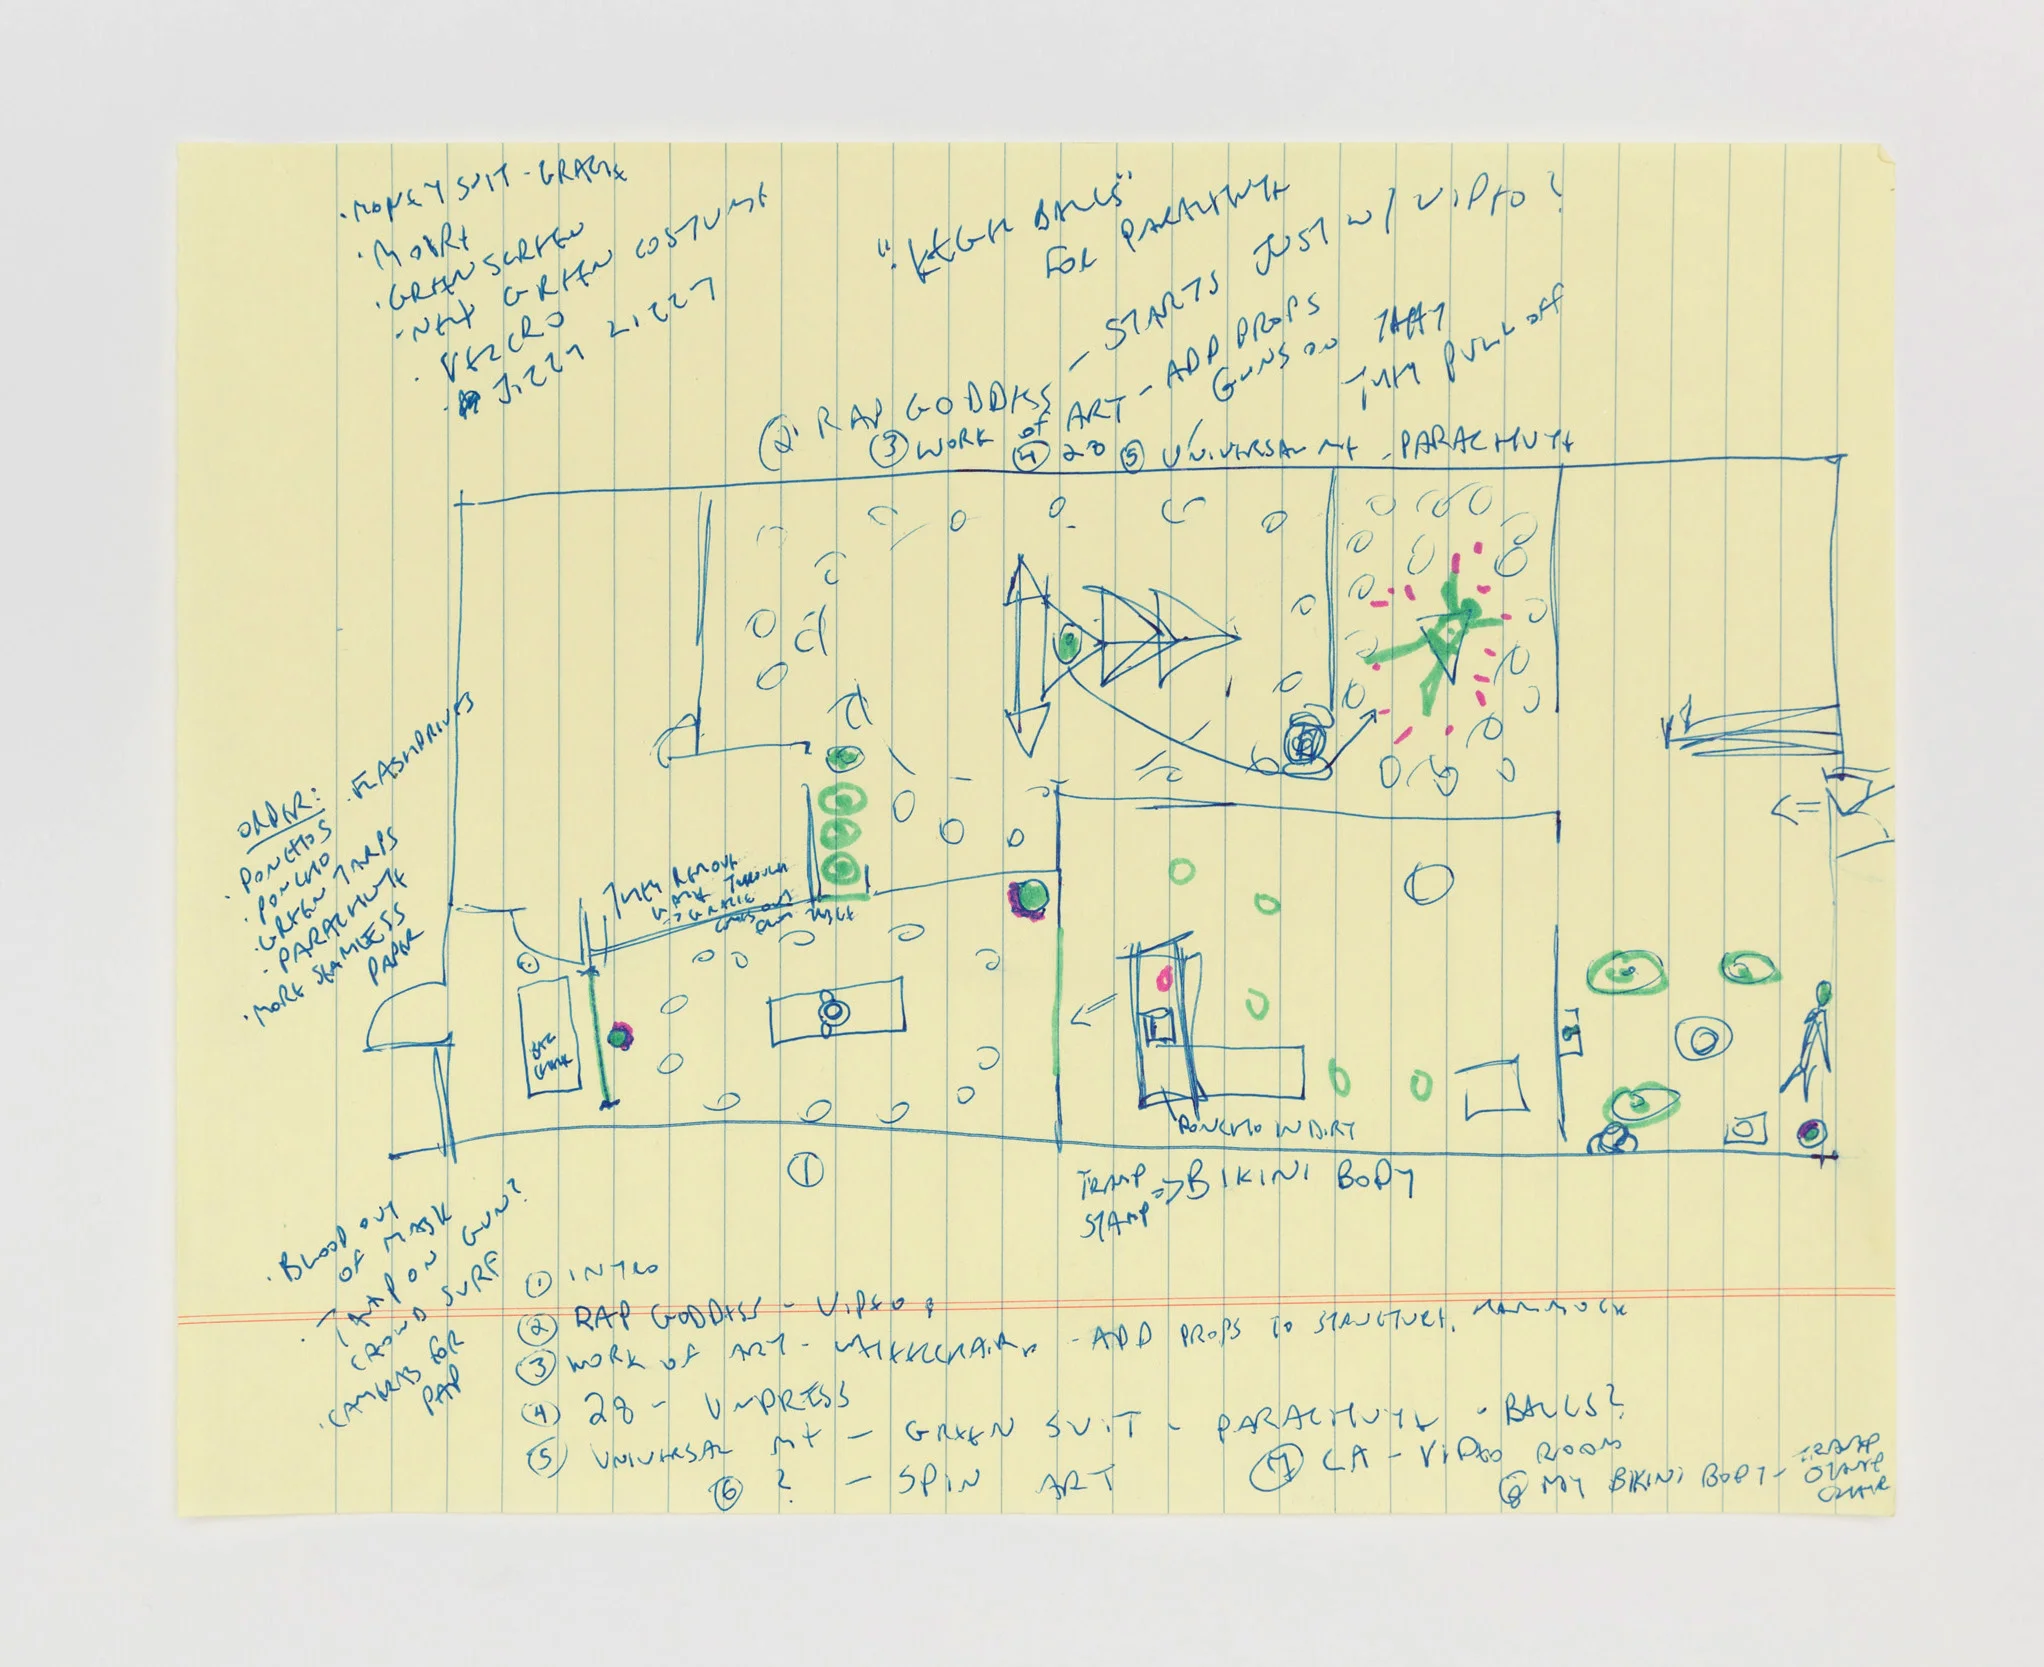 · MONEY SUIT - GRACIE
· MOIRE
· GREEN SCREEN
· NEW GREEN COSTUME
· VELCRO
· JIZZY LIZZY
"KEGEL BALLS"
FOR PARACHUTE
- STARTS JUST W/ VIDEO?
② RAP GODDESS
③ WORK of ART - ADD PROPS
GUNS ON
THEY PULL off
④ 28 ⑤ UNIVERSAL ME - PARACHUTE
· FLASHDRIVES
ORDER:
· PONCHOS
· PONCHO
· GREEN TARPS
· PARACHUTE
· MORE SEAMLESS
PAPER
THEY REMOVE
THROUGH
①
PONCHO IN DIRT
TRAMP
STAMP => BIKINI BODY
· BLOOD OUT
OF MASK
· TAPE ON GUN?
CROWD SURF
· CAMERAS FOR
① INTRO
② RAP GODDESS - VIDEO
③ WORK OF ART - WHEELCHAIR - ADD PROPS TO STRUCTURE.
④ 28 - UNDRESS
⑤ UNIVERSAL ME - GREEN SUIT - PARACHUTE - BALLS?
⑥ ? - SPIN ART
⑦ LA - VIDEO ROOM
⑧ MY BIKINI BODY -
CHAIR